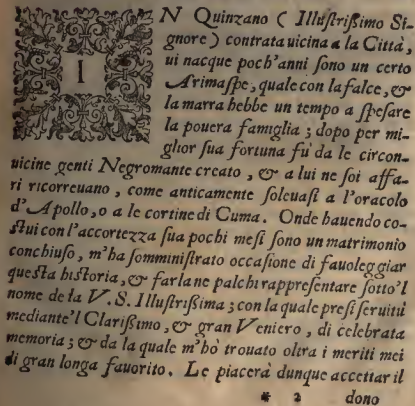 IN Quinzano ( Illustrißimo Si-
gnore ) contrata uicina a la Città,
ui nacque poch'anni sono un certo
Arimaspe, quale con la falce, &
la marra hebbe un tempo a spesare
la pouera famiglia ; dopo per mi-
glior sua fortuna fù da le circon-
uicine genti Negromante creato , & a lui ne soi affa-
ri ricorreuano , come anticamente soleuasi a l'oracolo
d'Apollo, o a le cortine di Cuma. Onde hauendo co-
stui con l'accortezza sua pochi mesi sono un matrimonio
conchiuso, m'ha somministrato occasione di fauoleggiar
questa historia, & farla ne palchi rappresentare sotto'l
nome de la V. S. Illustrißima ; con la quale presi seruitù
mediante'l Clarißimo, & gran Veniero , di celebrata
memoria ; & da la quale m'hò trouato oltra i meriti mei
di gran longa fauorito. Le piacerà dunque accettar il
* 2 dono